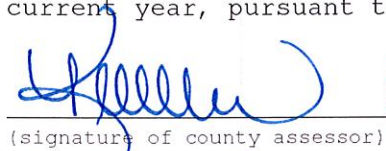 current year, pursuant t
(signature of county assessor)